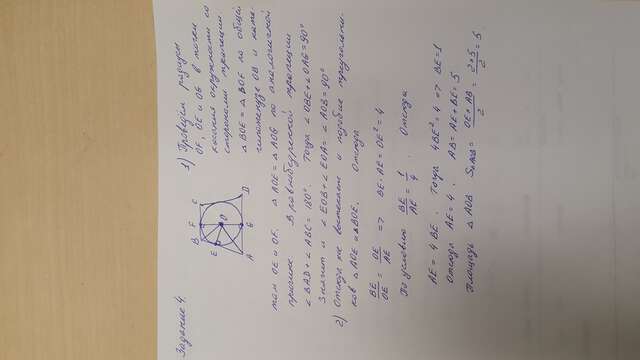 Задание 4.
B F C
E
O
A G D
1) Проведём радиусы
OF, OE и OG в точки
касания окружности со
сторонами трапеции.
△ BOE = △ BOF по общей
гипотенузе OB и кате-
там OE и OF. △ AOE = △ AOG по аналогичной
причине. В равнобедренной трапеции
∠ BAD + ∠ ABC = 180°. Тогда ∠ OBE + ∠ OAE = 90°
Значит и ∠ EOB + ∠ EOA = ∠ AOB = 90°
2) Отсюда же вытекает и подобие треугольни-
ков △ AOE и △ BOE. Откуда
BE/OE = OE/AE => BE · AE = OE² = 4
По условию BE/AE = 1/4. Откуда
AE = 4BE. Тогда 4BE² = 4 => BE = 1
Откуда AE = 4. AB = AE + BE = 5
Площадь △ AOB S△AOB = OE * AB/2 = 2 * 5/2 = 5.